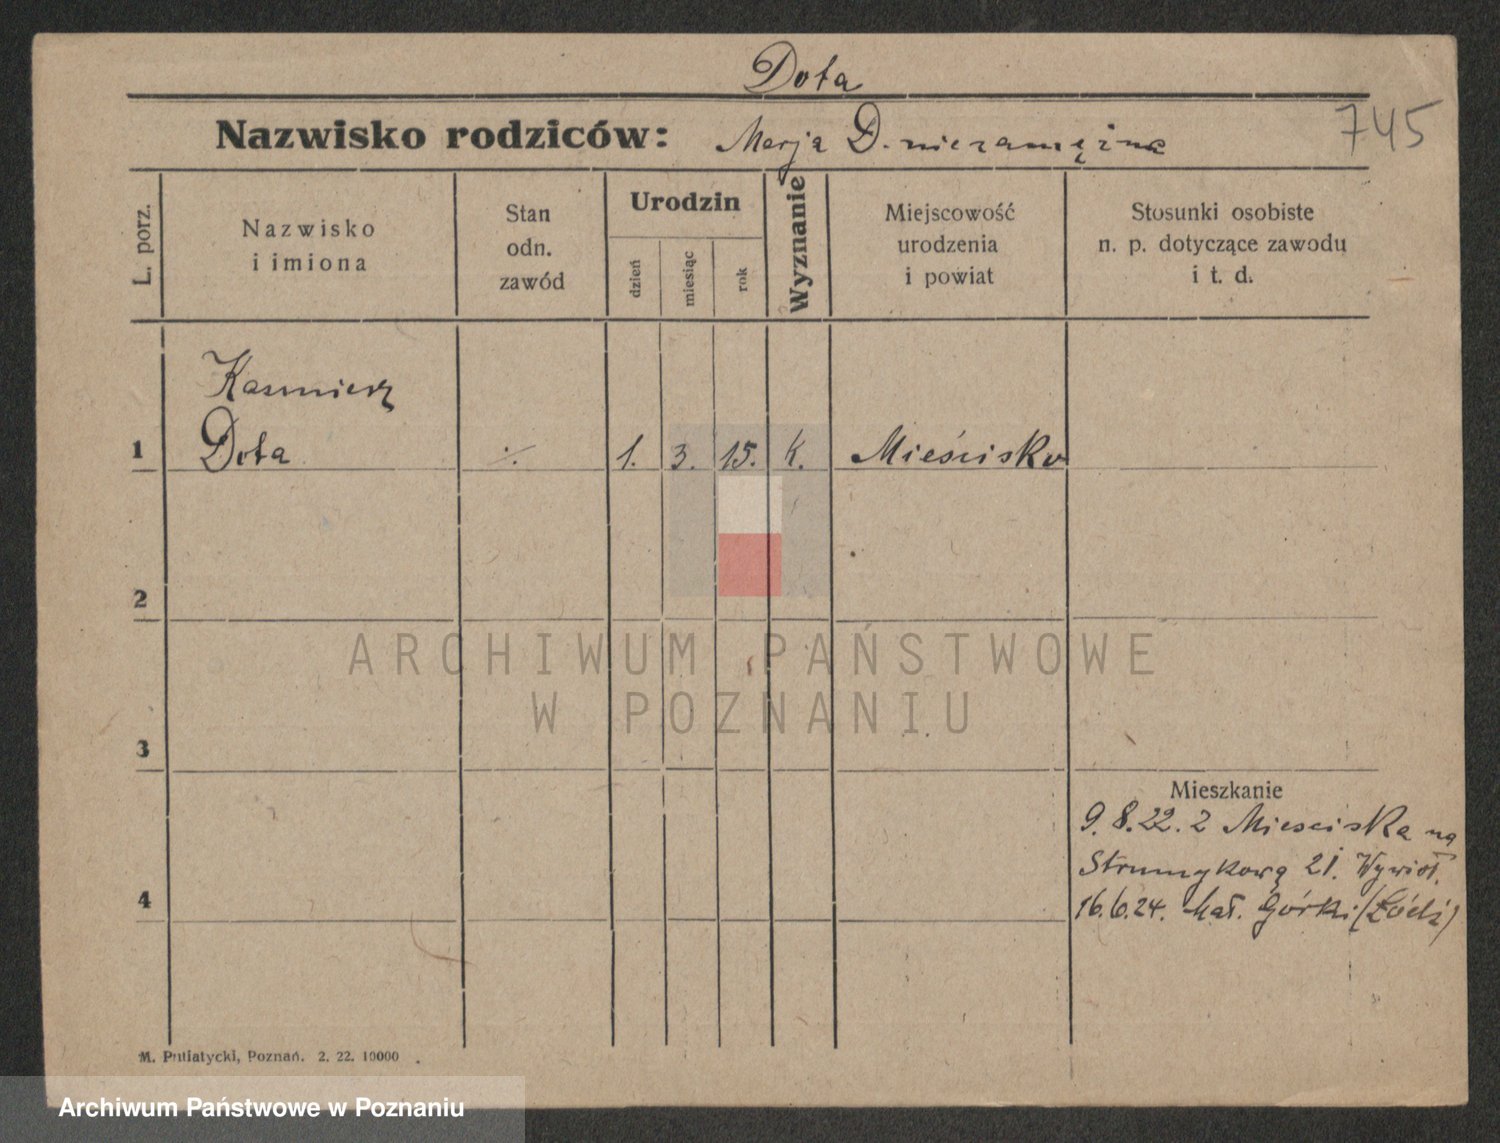 Dota
Nazwisko rodziców: Marja D. niezamężna
745
L. porz.
Nazwisko
i imiona
Stan
odn.
zawód
Urodzin
dzień
miesiąc
rok
Wyznanie
Miejscowość
urodzenia
i powiat
Stosunki osobiste
n. p. dotyczące zawodu
i t. d.
Kazmierz
1 Dota ·/. 1. 3. 15. k. Mieścisko
2
ARCHIWUM PAŃSTWOWE
W POZNANIU
3
Mieszkanie
9. 8. 22. z Miesciska na
Strumykową 21.
4
16.6.24. Górki (Łódź)
M. Putiatycki, Poznań. 2. 22. 10000
Archiwum Państwowe w Poznaniu